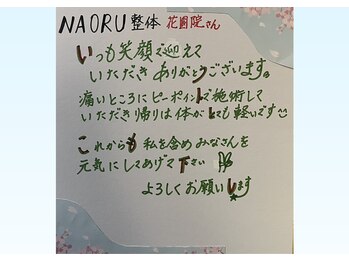 NAORU整体 花園院さん
いつも笑顔で迎えて
いただき ありがとうございます。
痛いところにピーポイントで施術して
いただき帰りは体がとても軽いです
これからも 私を含めみなさんを
元気にしてあげて下さい
よろしくお願いします